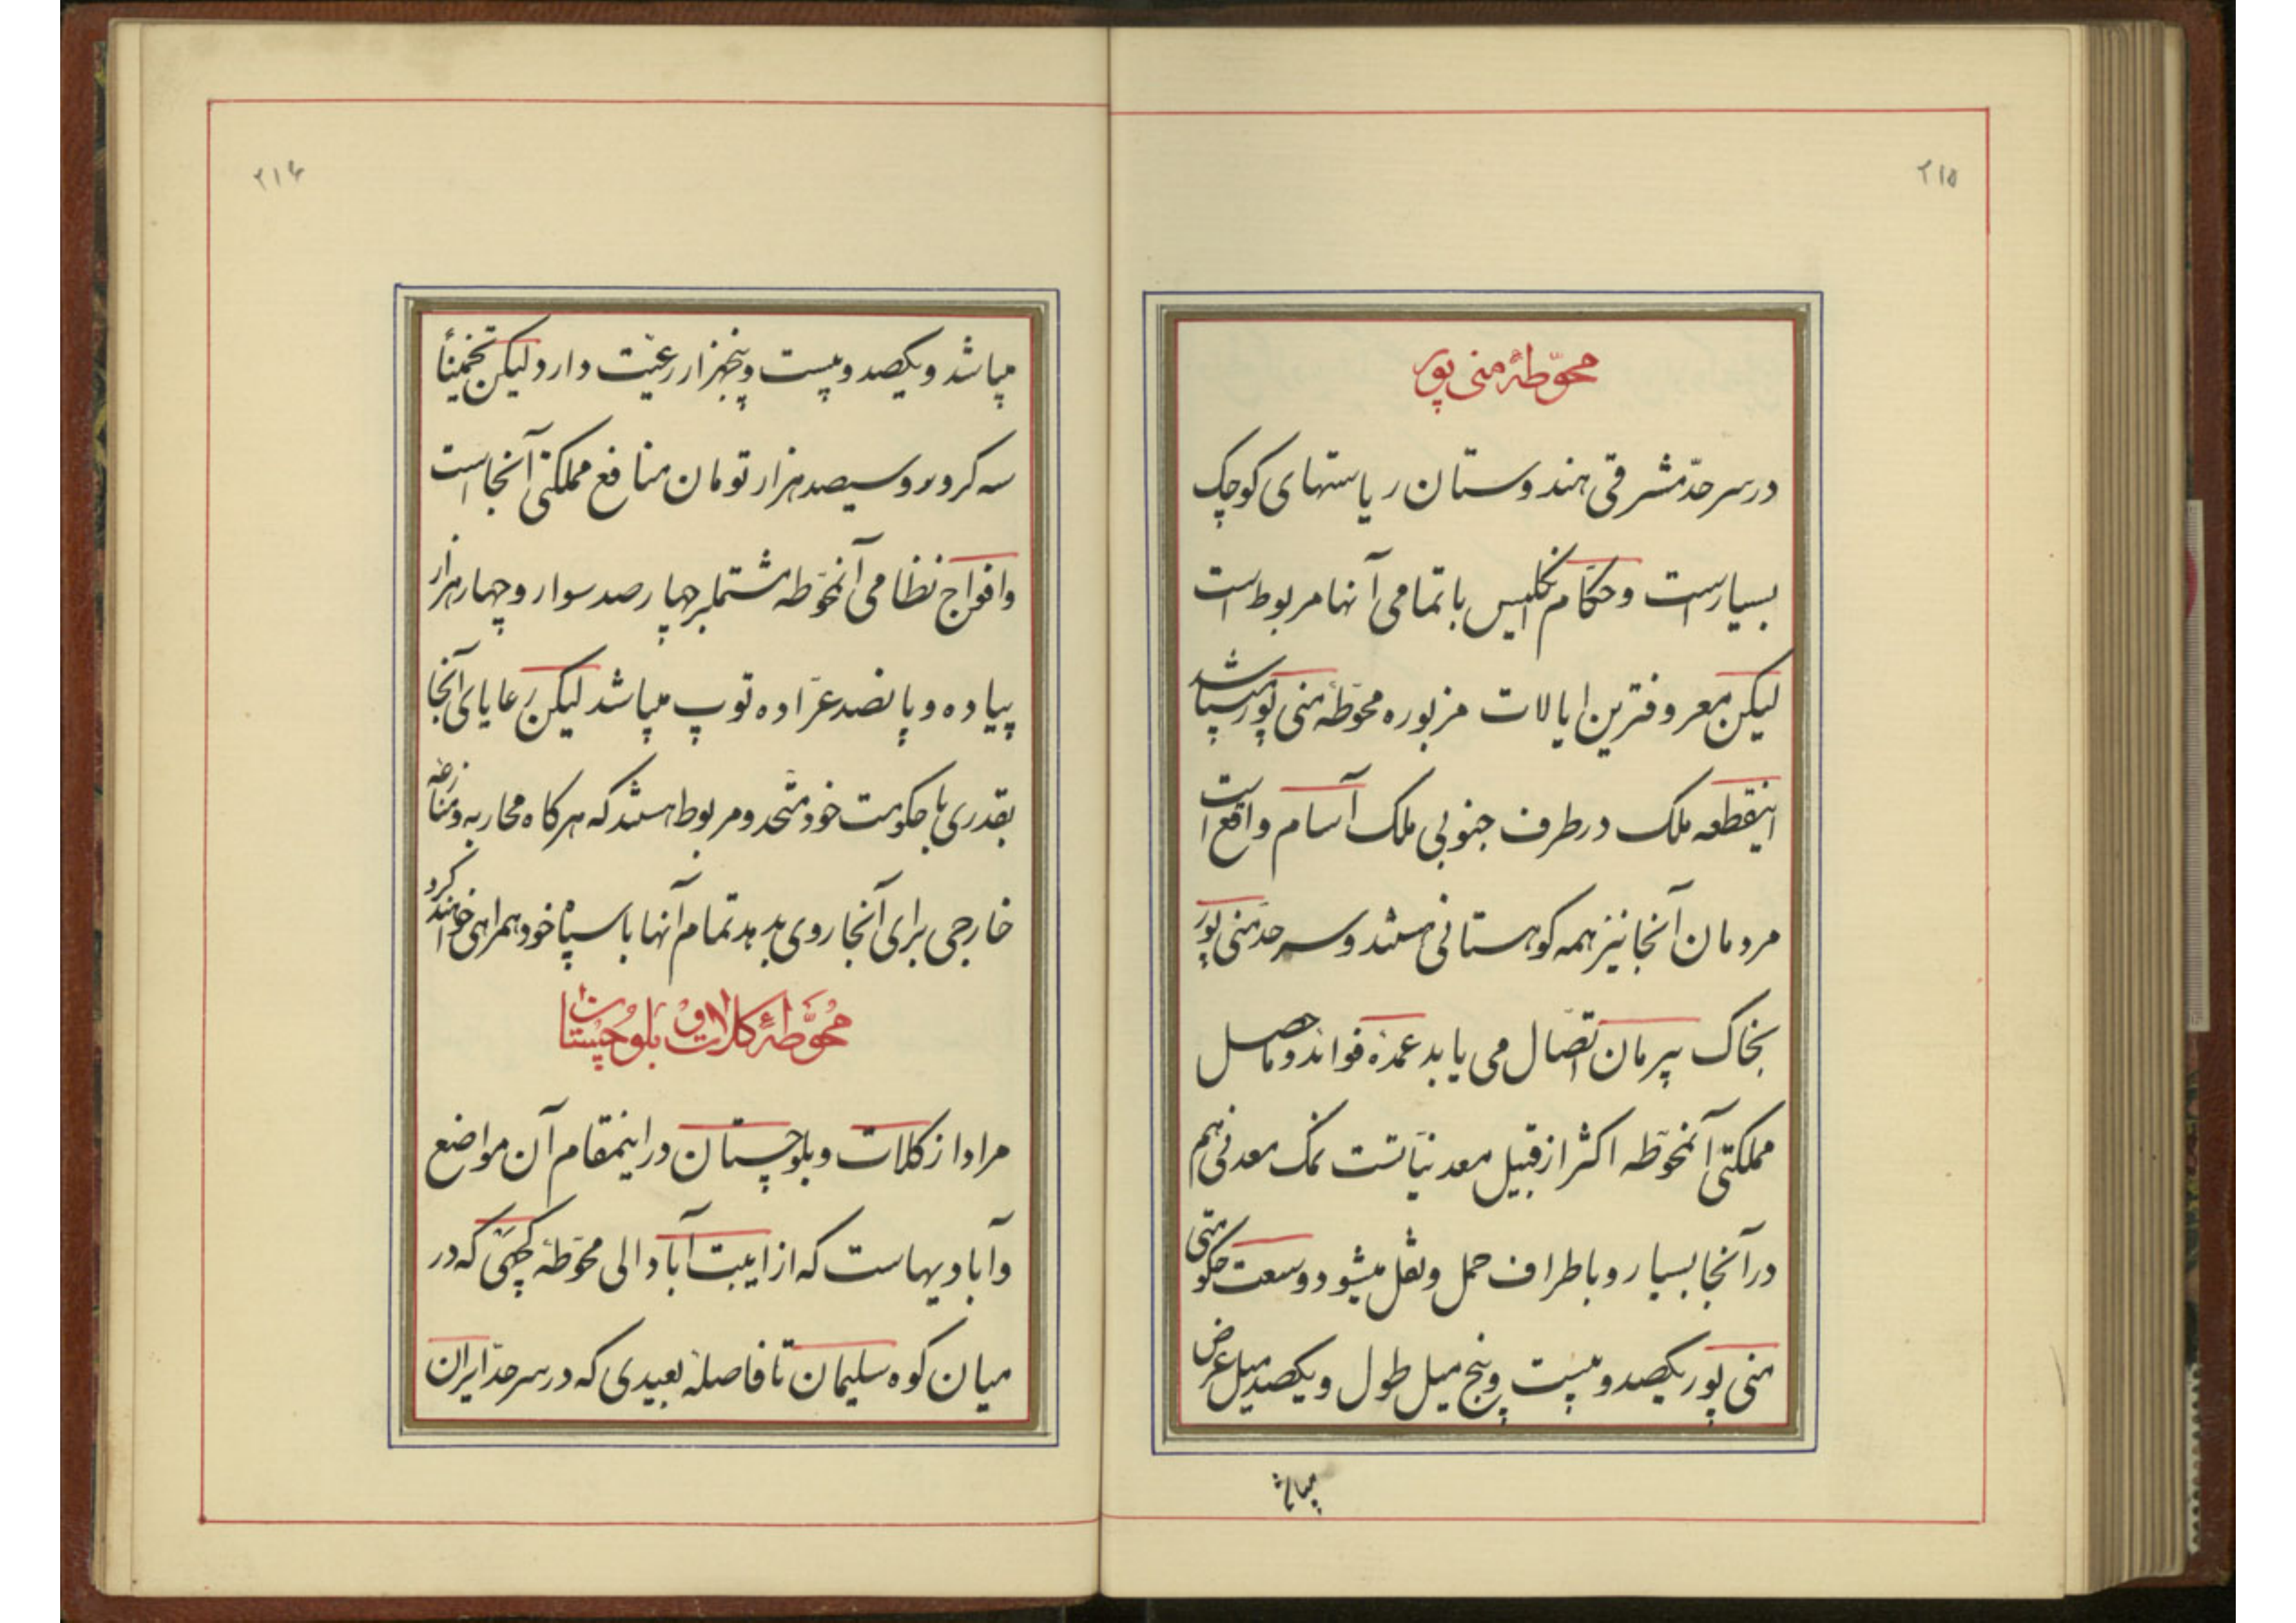 ۲۱۵
محوّطهٔ منی پور
در سر حدّ مشرقی هندوستان ریاستهای کوچک
بسیار است و حکّام انگلیس با تمامی آنها مربوط است
لیکن معروفترین ایالات مزبوره محوّطهٔ منی پور میباشد
اینقطعه ملک در طرف جنوبی ملک آسام واقع است
مردمان آنجا نیز همه کوهستانی هستند و سر حدّ منی پور
بخاک بیرمان اتّصال می یابد عمدهٔ فوائد و ماحصل
مملکتی آنمحوّطه اکثر از قبیل معدنیّاتست نمک معدنی هم
در آنجا بسیار و باطراف حمل و نقل میشود وسعت حکومتی
منی پور یکصد و بیست و پنج میل طول و یکصد میل عرض
میباشد
۲۱۶
میباشد و یکصد و بیست و پنجهزار رعیّت دارد لیکن تخمیناً
سه کرور و سیصد هزار تومان منافع مملکتی آنجا است
و افواج نظامی آنمحوّطه مشتملبر چهار صد سوار و چهار هزار
پیاده و پانصد عرّاده توپ میباشد لیکن رعایای آنجا
بقدری با حکومت خود متّحد و مربوط هستند که هر گاه محاربه و منازعهٔ
خارجی برای آنجا روی بدهد تمام آنها با سپاه خود همراهی خواهند کرد
مُحوَّطهٔ کلات و بلوچستان
مراد از کلات و بلوچستان در اینمقام آن مواضع
و آبادیهاست که از ایبت آباد الی محوّطهٔ کچهی که در
میان کوه سلیمان تا فاصلهٔ بعیدی که در سر حدّ ایران